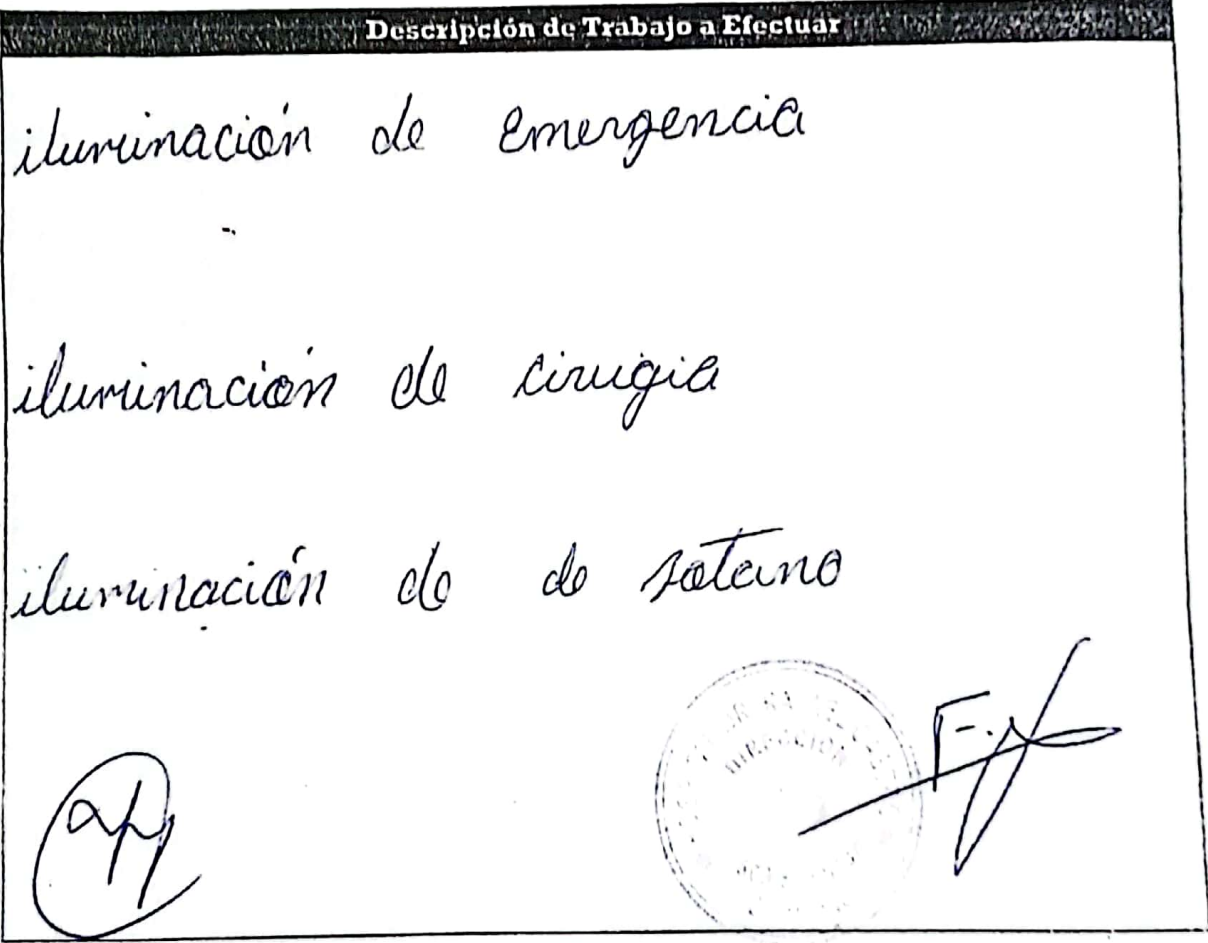 Descripción de Trabajo a Efectuar
iluminación de Emergencia
iluminación de cirugia
iluminación de de sotano
DIRECCION